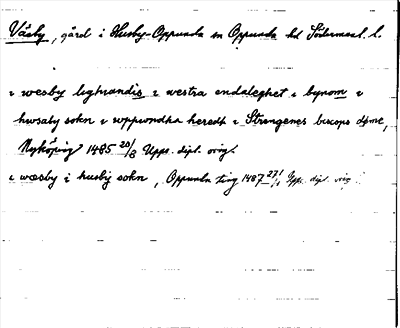 Väsby, gård i Husby-Oppunda sn Oppunda hd Södermanl. l.
i wesby lighiandis i westra endaleghet i bynom i
hwsaby sokn i wppwndha heredh i Strengenes biscops döme,
Nyköping 1485 20/8 Upps. dipl. orig.
i wæsby i husby sokn, Oppunda ting 1487 27/1 Upps. dipl. orig.